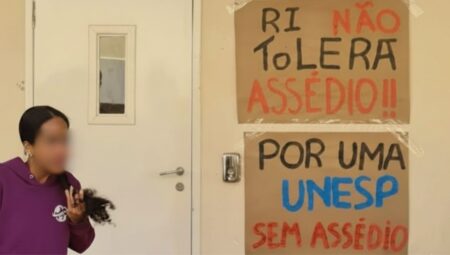 RI NÃO
ToLERA
ASSÉDIO!!
POR UMA
UNESP
SEM ASSÉDIO